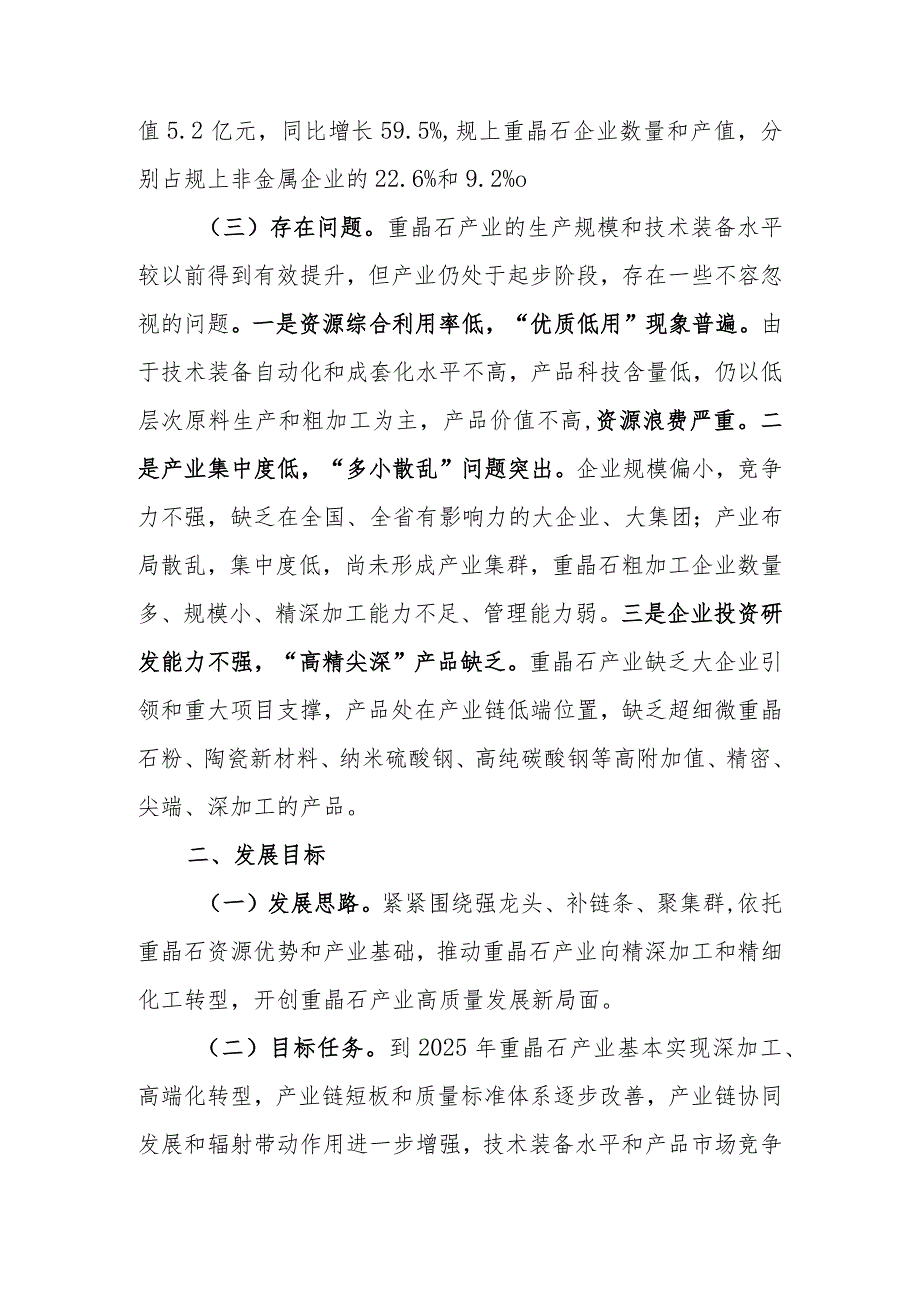 值5.2亿元，同比增长59.5%,规上重晶石企业数量和产值，分
别占规上非金属企业的22.6%和9.2%o
（三）存在问题。重晶石产业的生产规模和技术装备水平
较以前得到有效提升，但产业仍处于起步阶段，存在一些不容忽
视的问题。一是资源综合利用率低，“优质低用”现象普遍。由
于技术装备自动化和成套化水平不高，产品科技含量低，仍以低
层次原料生产和粗加工为主，产品价值不高,资源浪费严重。二
是产业集中度低，“多小散乱”问题突出。企业规模偏小，竞争
力不强，缺乏在全国、全省有影响力的大企业、大集团；产业布
局散乱，集中度低，尚未形成产业集群，重晶石粗加工企业数量
多、规模小、精深加工能力不足、管理能力弱。三是企业投资研
发能力不强，“高精尖深”产品缺乏。重晶石产业缺乏大企业引
领和重大项目支撑，产品处在产业链低端位置，缺乏超细微重晶
石粉、陶瓷新材料、纳米硫酸钢、高纯碳酸钢等高附加值、精密、
尖端、深加工的产品。
二、发展目标
（一）发展思路。紧紧围绕强龙头、补链条、聚集群,依托
重晶石资源优势和产业基础，推动重晶石产业向精深加工和精细
化工转型，开创重晶石产业高质量发展新局面。
（二）目标任务。到2025年重晶石产业基本实现深加工、
高端化转型，产业链短板和质量标准体系逐步改善，产业链协同
发展和辐射带动作用进一步增强，技术装备水平和产品市场竞争